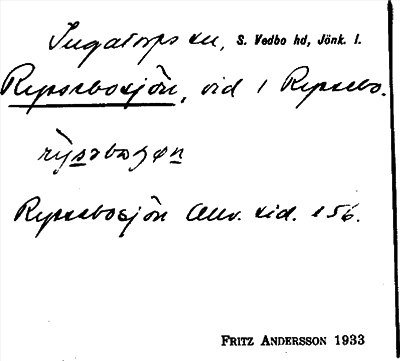 Ingatorps sn, S. Vedbo hd, Jönk. l.
Rypsebosjön, vid 1 Rypsebo.
Rypsebosjön Allv. sid. 156.
FRITZ ANDERSSON 1933